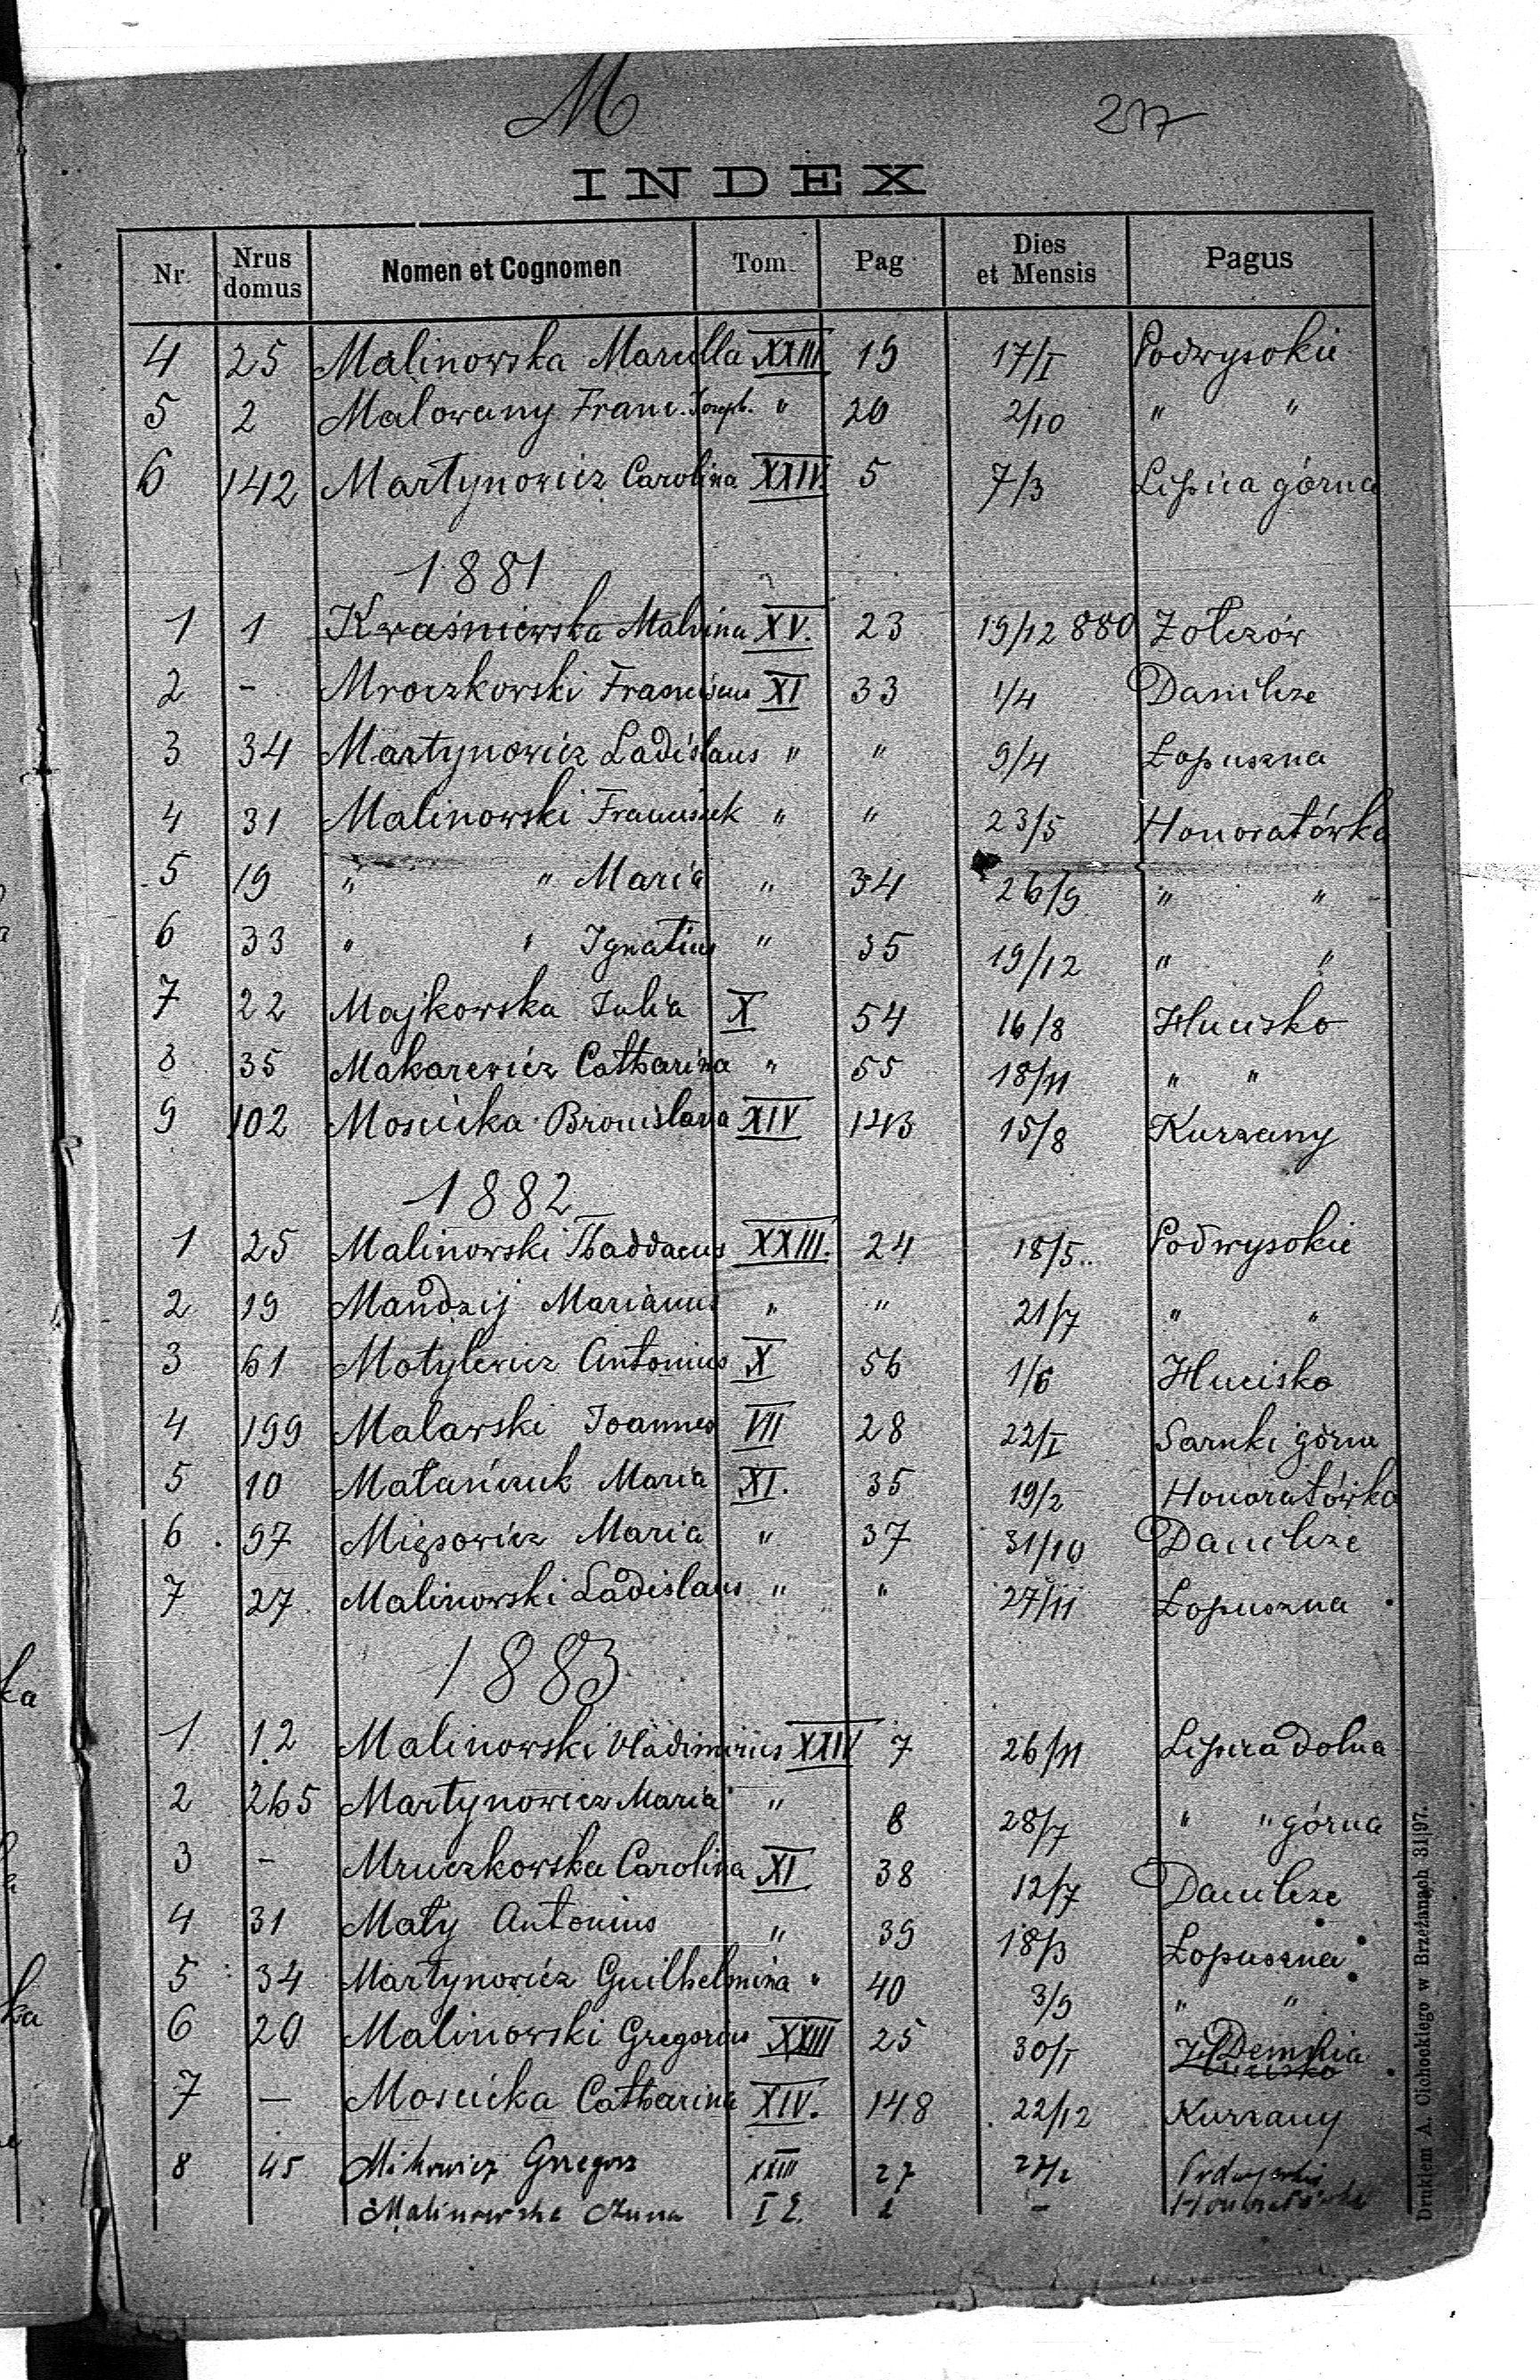 M 217
INDEX
Nr. Nrus domus Nomen et Cognomen Tom. Pag. Dies et Mensis Pagus
4 25 Malinowska Marcella XXIII 19 17/I Podwysokie
5 2 Malowany Franc. Joseph. " 20 2/10 " "
6 142 Martynowicz Carolina XXIV. 5 7/3 Lipica górna
1881
1 1 Kwaśniewska Malvina XV. 23 19/12 880 Żołczów
2 - Mroczkowski Franciscus XI 33 1/4 Danilcze
3 34 Martynowicz Ladislaus " " 9/4 Łopuszna
4 31 Malinowski Franciszek " " 23/5 Honoratówka
5 19 " " Maria " 34 26/9 " "
6 33 " " Ignatius " 35 19/12 " "
7 22 Majkowska Julia X 54 16/8 Hucisko
8 35 Makarewicz Catharina " 55 18/11 " "
9 102 Moscicka Bronislava XIV 143 15/8 Kurzany
1882
1 25 Malinowski Thaddaeus XXIII. 24 18/5. Podwysokie
2 19 Mandzij Marianus " " 21/7 " "
3 61 Motylewicz Antonius X 56 1/6 Hucisko
4 199 Malawski Joannes VII 28 22/I Sarnki górne
5 10 Matańczuk Maria XI. 35 19/2 Honoratówka
6 97 Mięsowicz Maria " 37 31/10 Danilcze
7 27 Malinowski Ladislaus " " 27/11 Łopuszna
1883
1 12 Malinowski Vladimirus XXIV 7 26/11 Lipica dolna
2 265 Martynowicz Maria " 8 28/7 " " górna
3 - Mruczkowska Carolina XI 38 12/7 Danilcze
4 31 Mały Antonius " 39 18/3 Łopuszna
5 34 Martynowicz Guilhelmina " 40 3/9 " "
6 20 Malinowski Gregorius XXIII 25 30/I Demnia
7 - Moscicka Catharina XIV. 148 22/12 Kurzany
8 45 Grzegorz XXIII 27 Podwysokie
Malinowska Anna I 2 - Honoratówka
Drukiem A. Cichockiego w Brzeżanach 31|97.